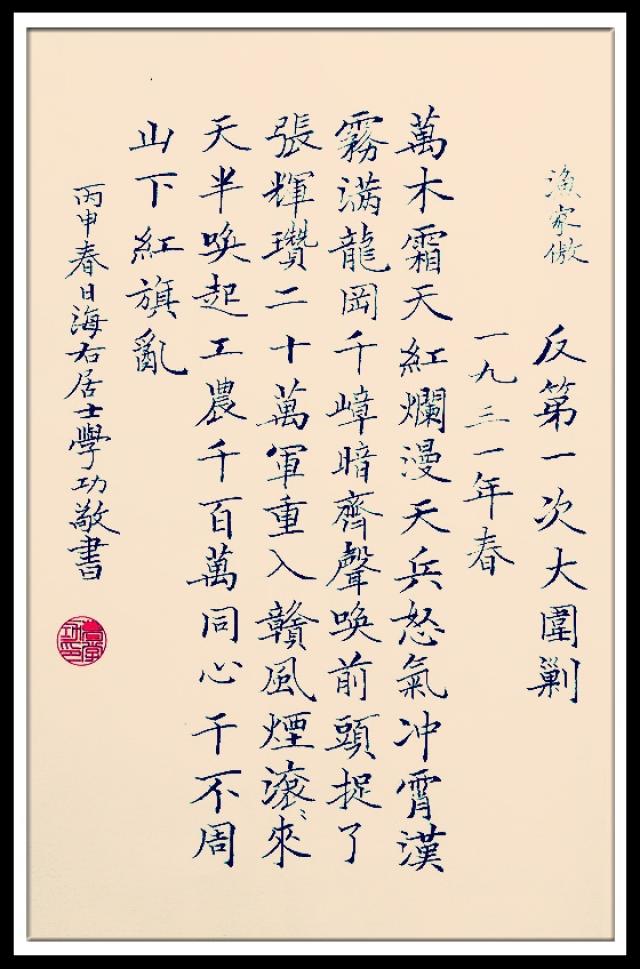 漁家傲
反第一次大圍剿
一九三一年春
萬木霜天紅爛漫天兵怒氣冲霄漢
霧满龍岡千嶂暗齊聲唤前頭捉了
張輝瓚二十萬軍重入贛風煙滾〻來
天半唤起工農千百萬同心干不周
山下紅旗亂
丙申春日海右居士學功敬書